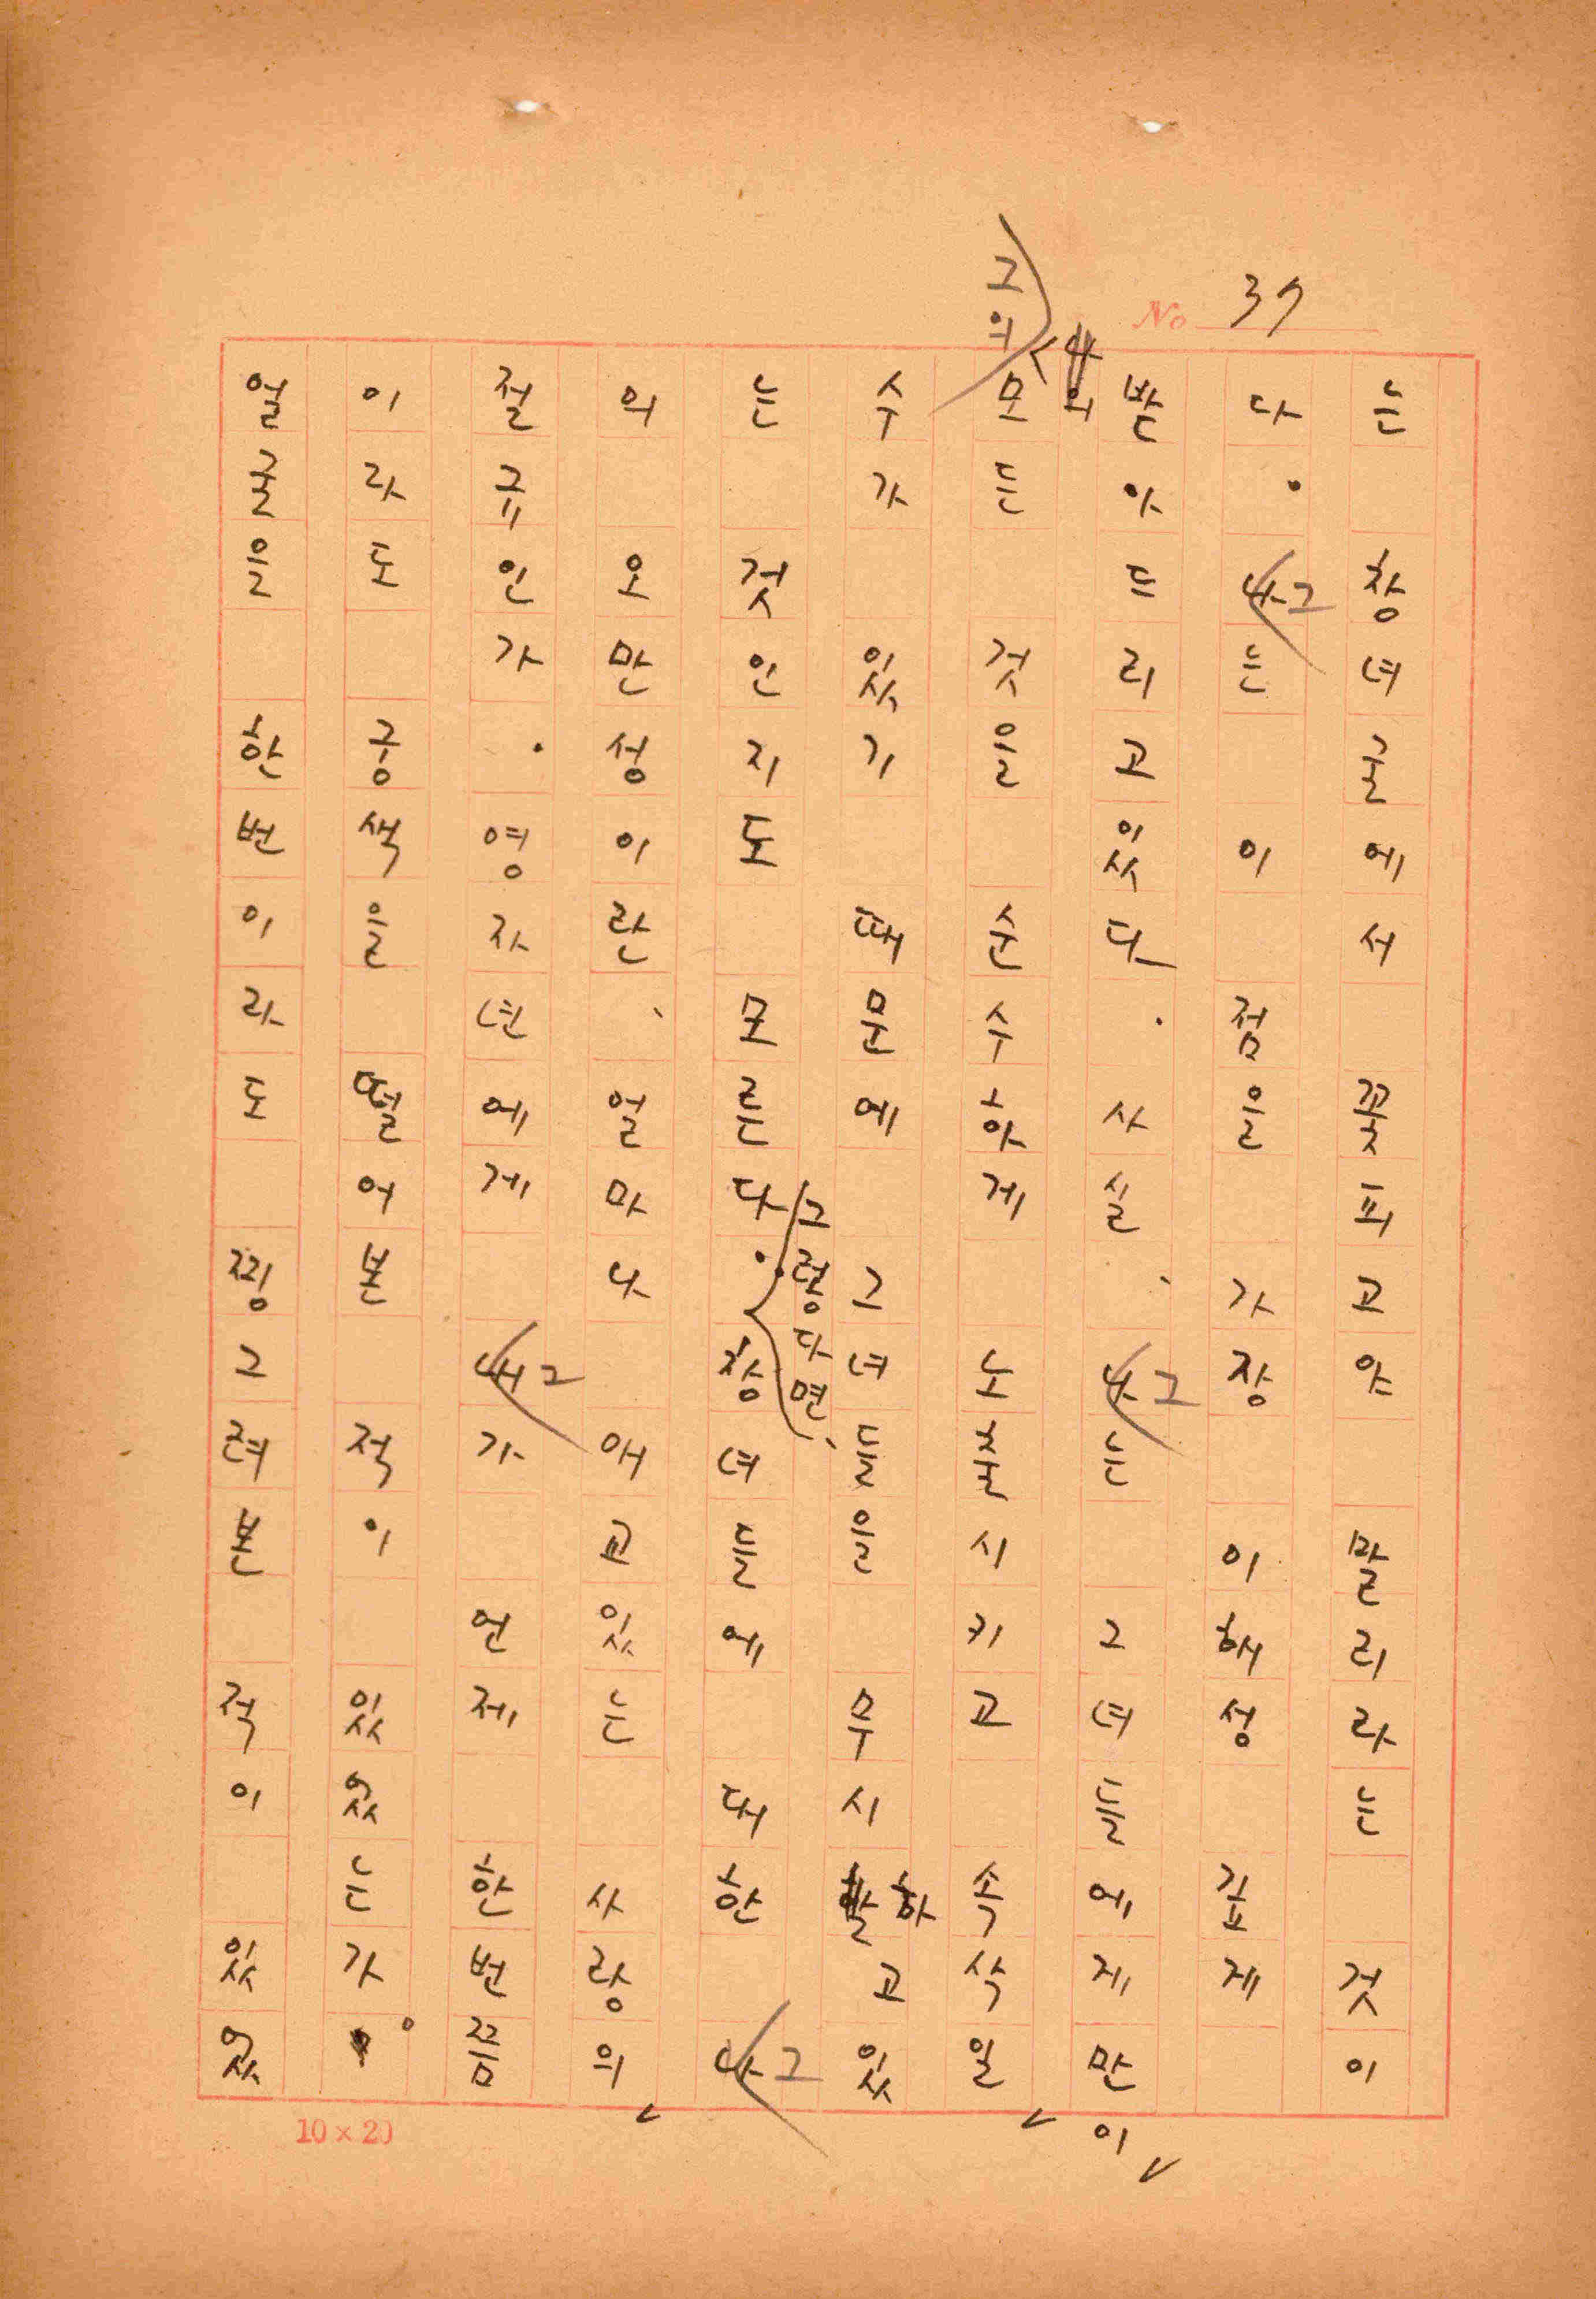 No 37
그의
나의
는 창녀굴에서 꽃피고야 말리라는 것이
다. 나그는 이 점을 가장 이해성 깊게
받아드리고 있다. 사실, 나그는 그녀들에게만이
모든 것을 순수하게 노출시키고 속삭일
수가 있기 때문에 그녀들을 무시하고 있
그렇다면,
는 것인지도 모른다. 창녀들에 대한 나그
의 오만성이란, 얼마나 애교있는 사랑의
절규인가. 영자년에게 내그가 언제 한번쯤
이라도 궁색을 떨어본 적이 있었는가.
얼굴을 한번이라도 찡그려본 적이 있었
10×20